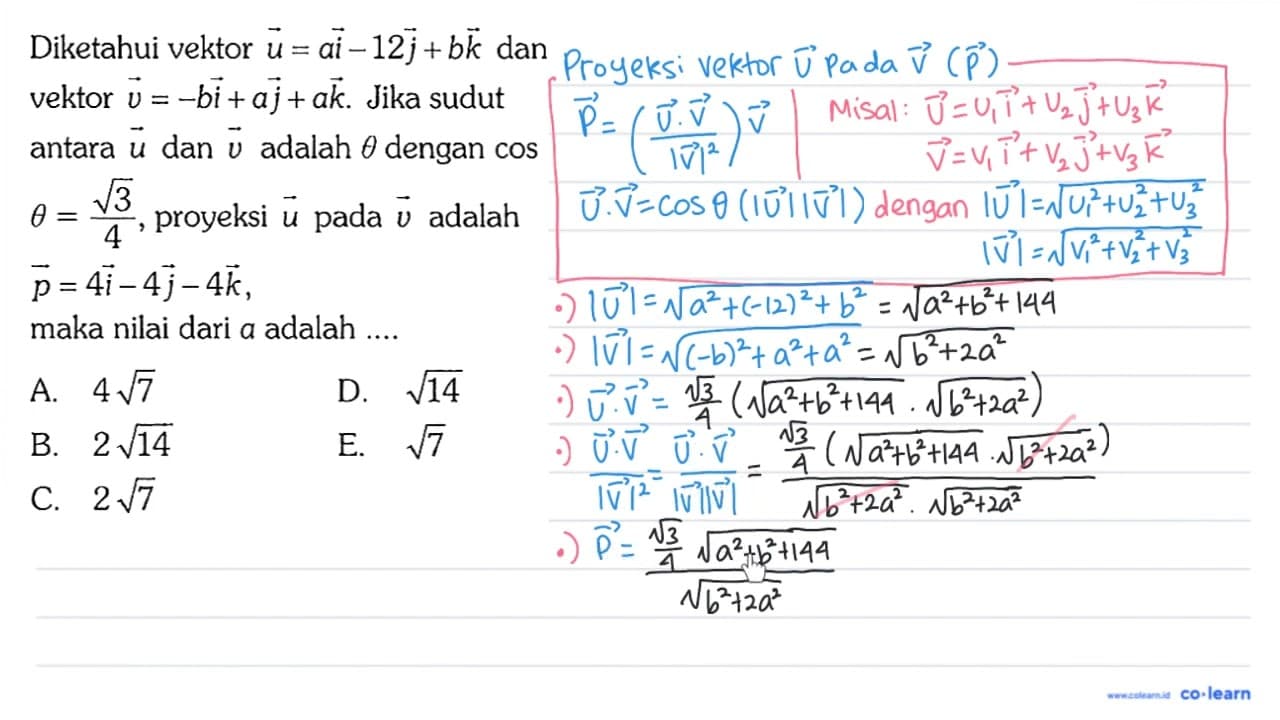 Diketahui vektor u⃗ = ai⃗ − 12j⃗ + bk⃗ dan
vektor v⃗ = −bi⃗ + aj⃗ + ak⃗. Jika sudut
antara u⃗ dan v⃗ adalah θ dengan cos
θ = √3/4, proyeksi u⃗ pada v⃗ adalah
p⃗ = 4i⃗ − 4j⃗ − 4k⃗,
maka nilai dari a adalah ....
A. 4√7 D. √14
B. 2√14 E. √7
C. 2√7
Proyeksi vektor U⃗ pada V⃗ (P⃗)
P⃗ = (U⃗.V⃗/|V⃗|²) V⃗
Misal: U⃗ = U₁i⃗ + U₂j⃗ + U₃k⃗
V⃗ = V₁i⃗ + V₂j⃗ + V₃k⃗
U⃗.V⃗ = cos θ (|U⃗||V⃗|) dengan |U⃗| = √(U₁² + U₂² + U₃²)
|V⃗| = √(V₁² + V₂² + V₃²)
•) |U⃗| = √(a² + (−12)² + b²) = √(a² + b² + 144)
•) |V⃗| = √((−b)² + a² + a²) = √(b² + 2a²)
•) U⃗.V⃗ = √3/4 (√(a² + b² + 144) . √(b² + 2a²))
•) U⃗.V⃗/|V⃗|² = U⃗.V⃗/|V⃗||V⃗| = √3/4 (√(a² + b² + 144) . √(b² + 2a²)) / √(b² + 2a²) . √(b² + 2a²)
•) P⃗ = √3/4 √(a² + b² + 144) / √(b² + 2a²)
www.colearn.id co·learn